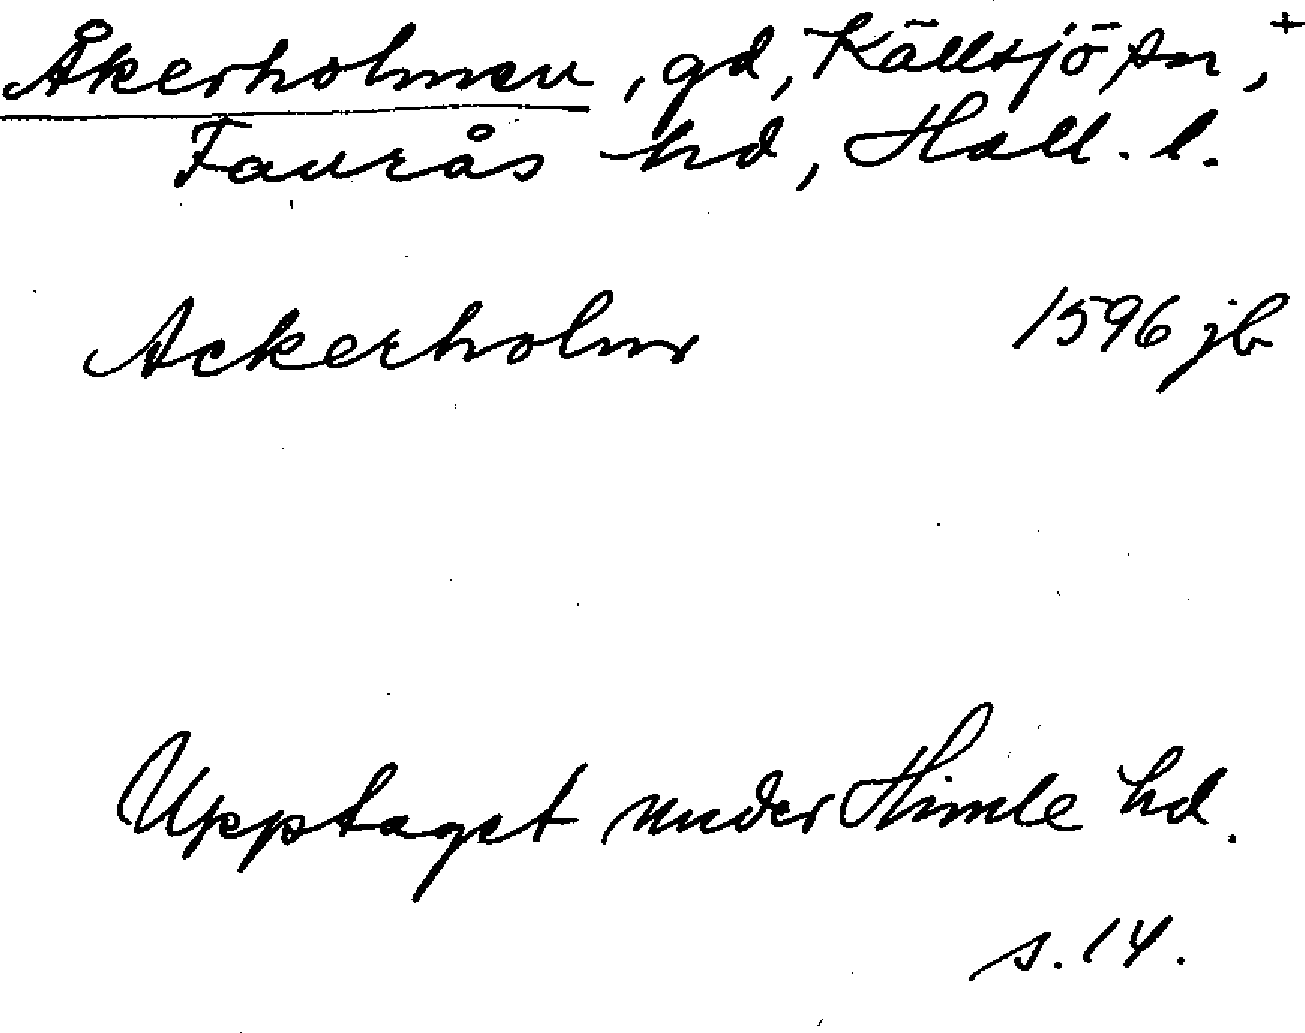 Åkerholmen, gd, Källsjö sn, +
Faurås hd, Hall. l.
Ackerholm 1596 jb
Upptaget under Himle hd.
s. 14.